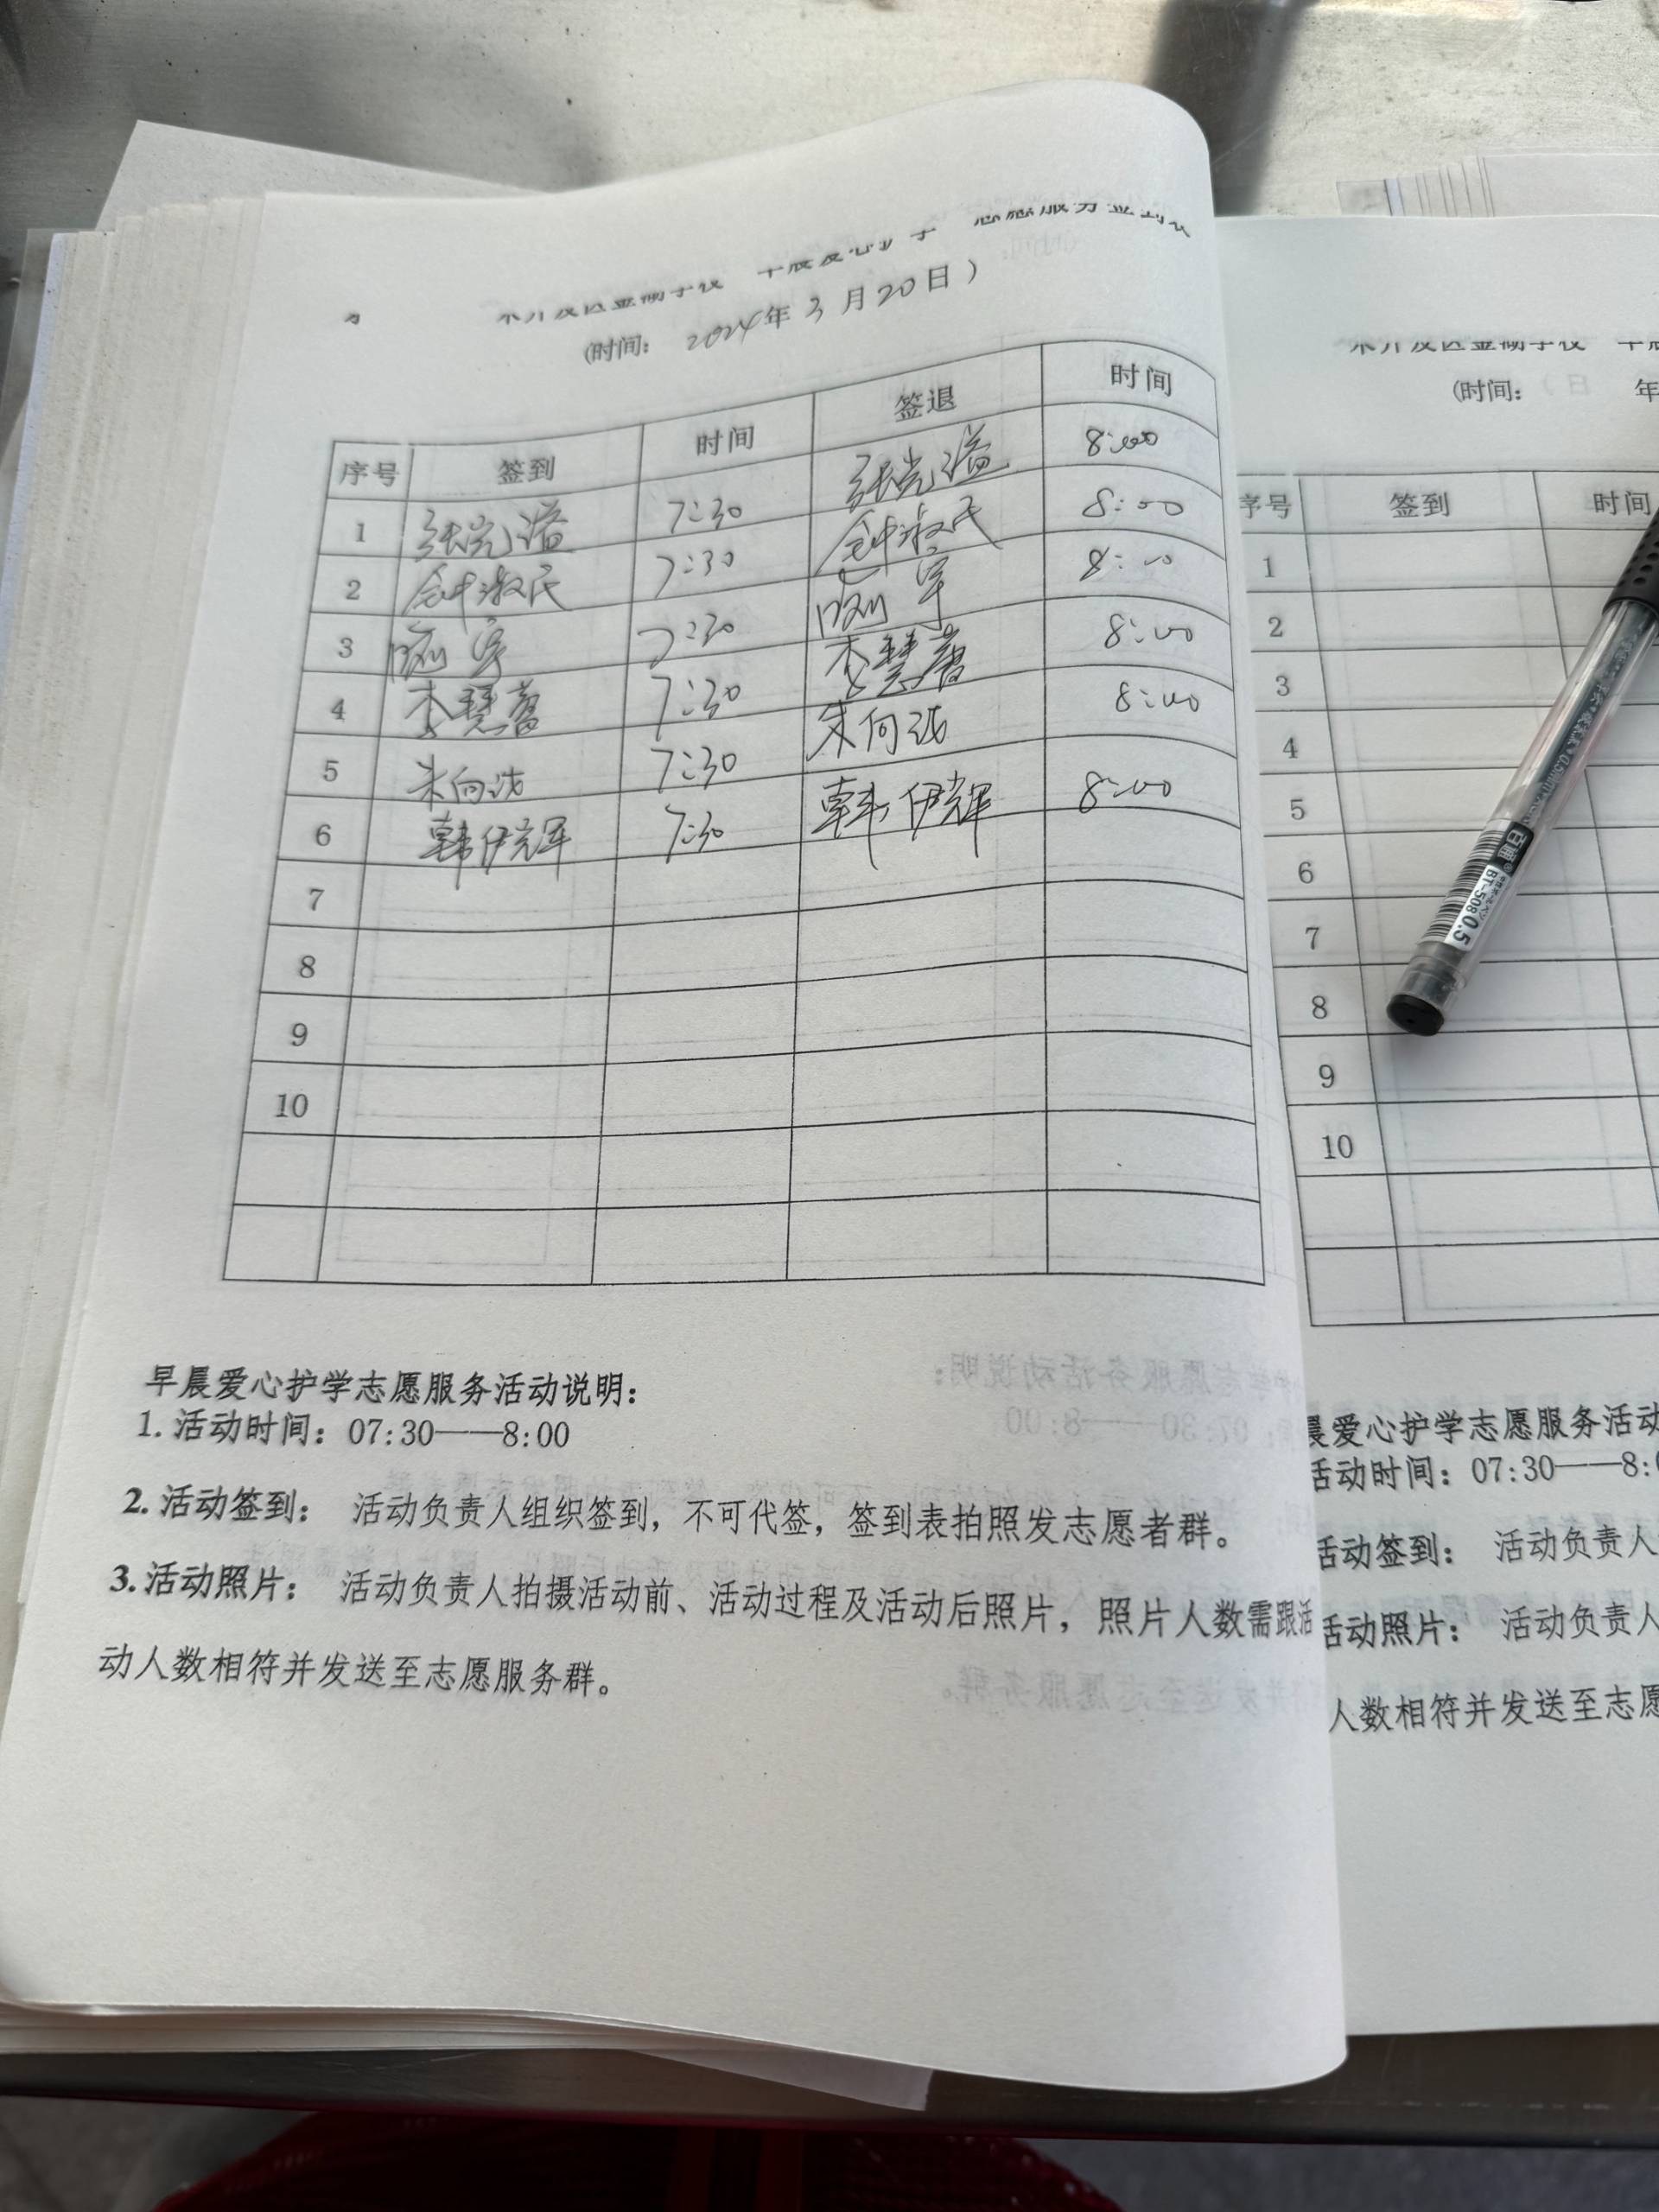 (时间: 2024年3月20日)
序号 签到 时间 签退 时间
1 7:30 8:00
2 钟淑民 7:30 钟淑民 8:00
3 7:30 8:00
4 李慧 7:30 李慧 8:00
5 朱向 7:30 朱向 8:00
6 韩伊辉 7:30 韩伊辉 8:00
7
8
9
10
早晨爱心护学志愿服务活动说明:
1.活动时间: 07:30——8:00
2.活动签到: 活动负责人组织签到,不可代签,签到表拍照发志愿者群。
3.活动照片: 活动负责人拍摄活动前、活动过程及活动后照片,照片人数需跟活
动人数相符并发送至志愿服务群。
(时间: 年
序号 签到 时间
1
2
3
4
5
6
7
8
9
10
晨爱心护学志愿服务活动
活动时间: 07:30——8:0
活动签到: 活动负责人
活动照片: 活动负责人
人数相符并发送至志愿
百通
BT-508 0.5